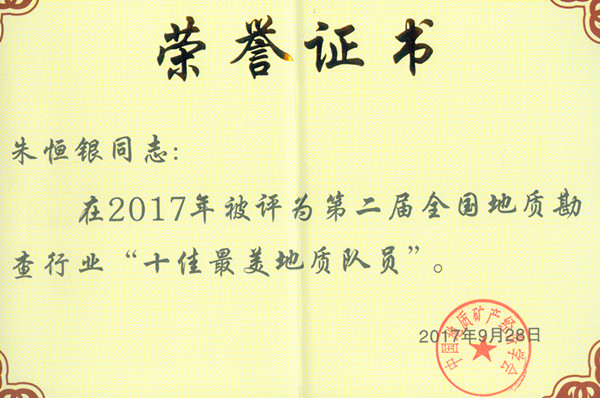 荣誉证书
朱恒银同志：
在2017年被评为第二届全国地质勘
查行业“十佳最美地质队员”。
中国地质矿产经济学会
2017年9月28日